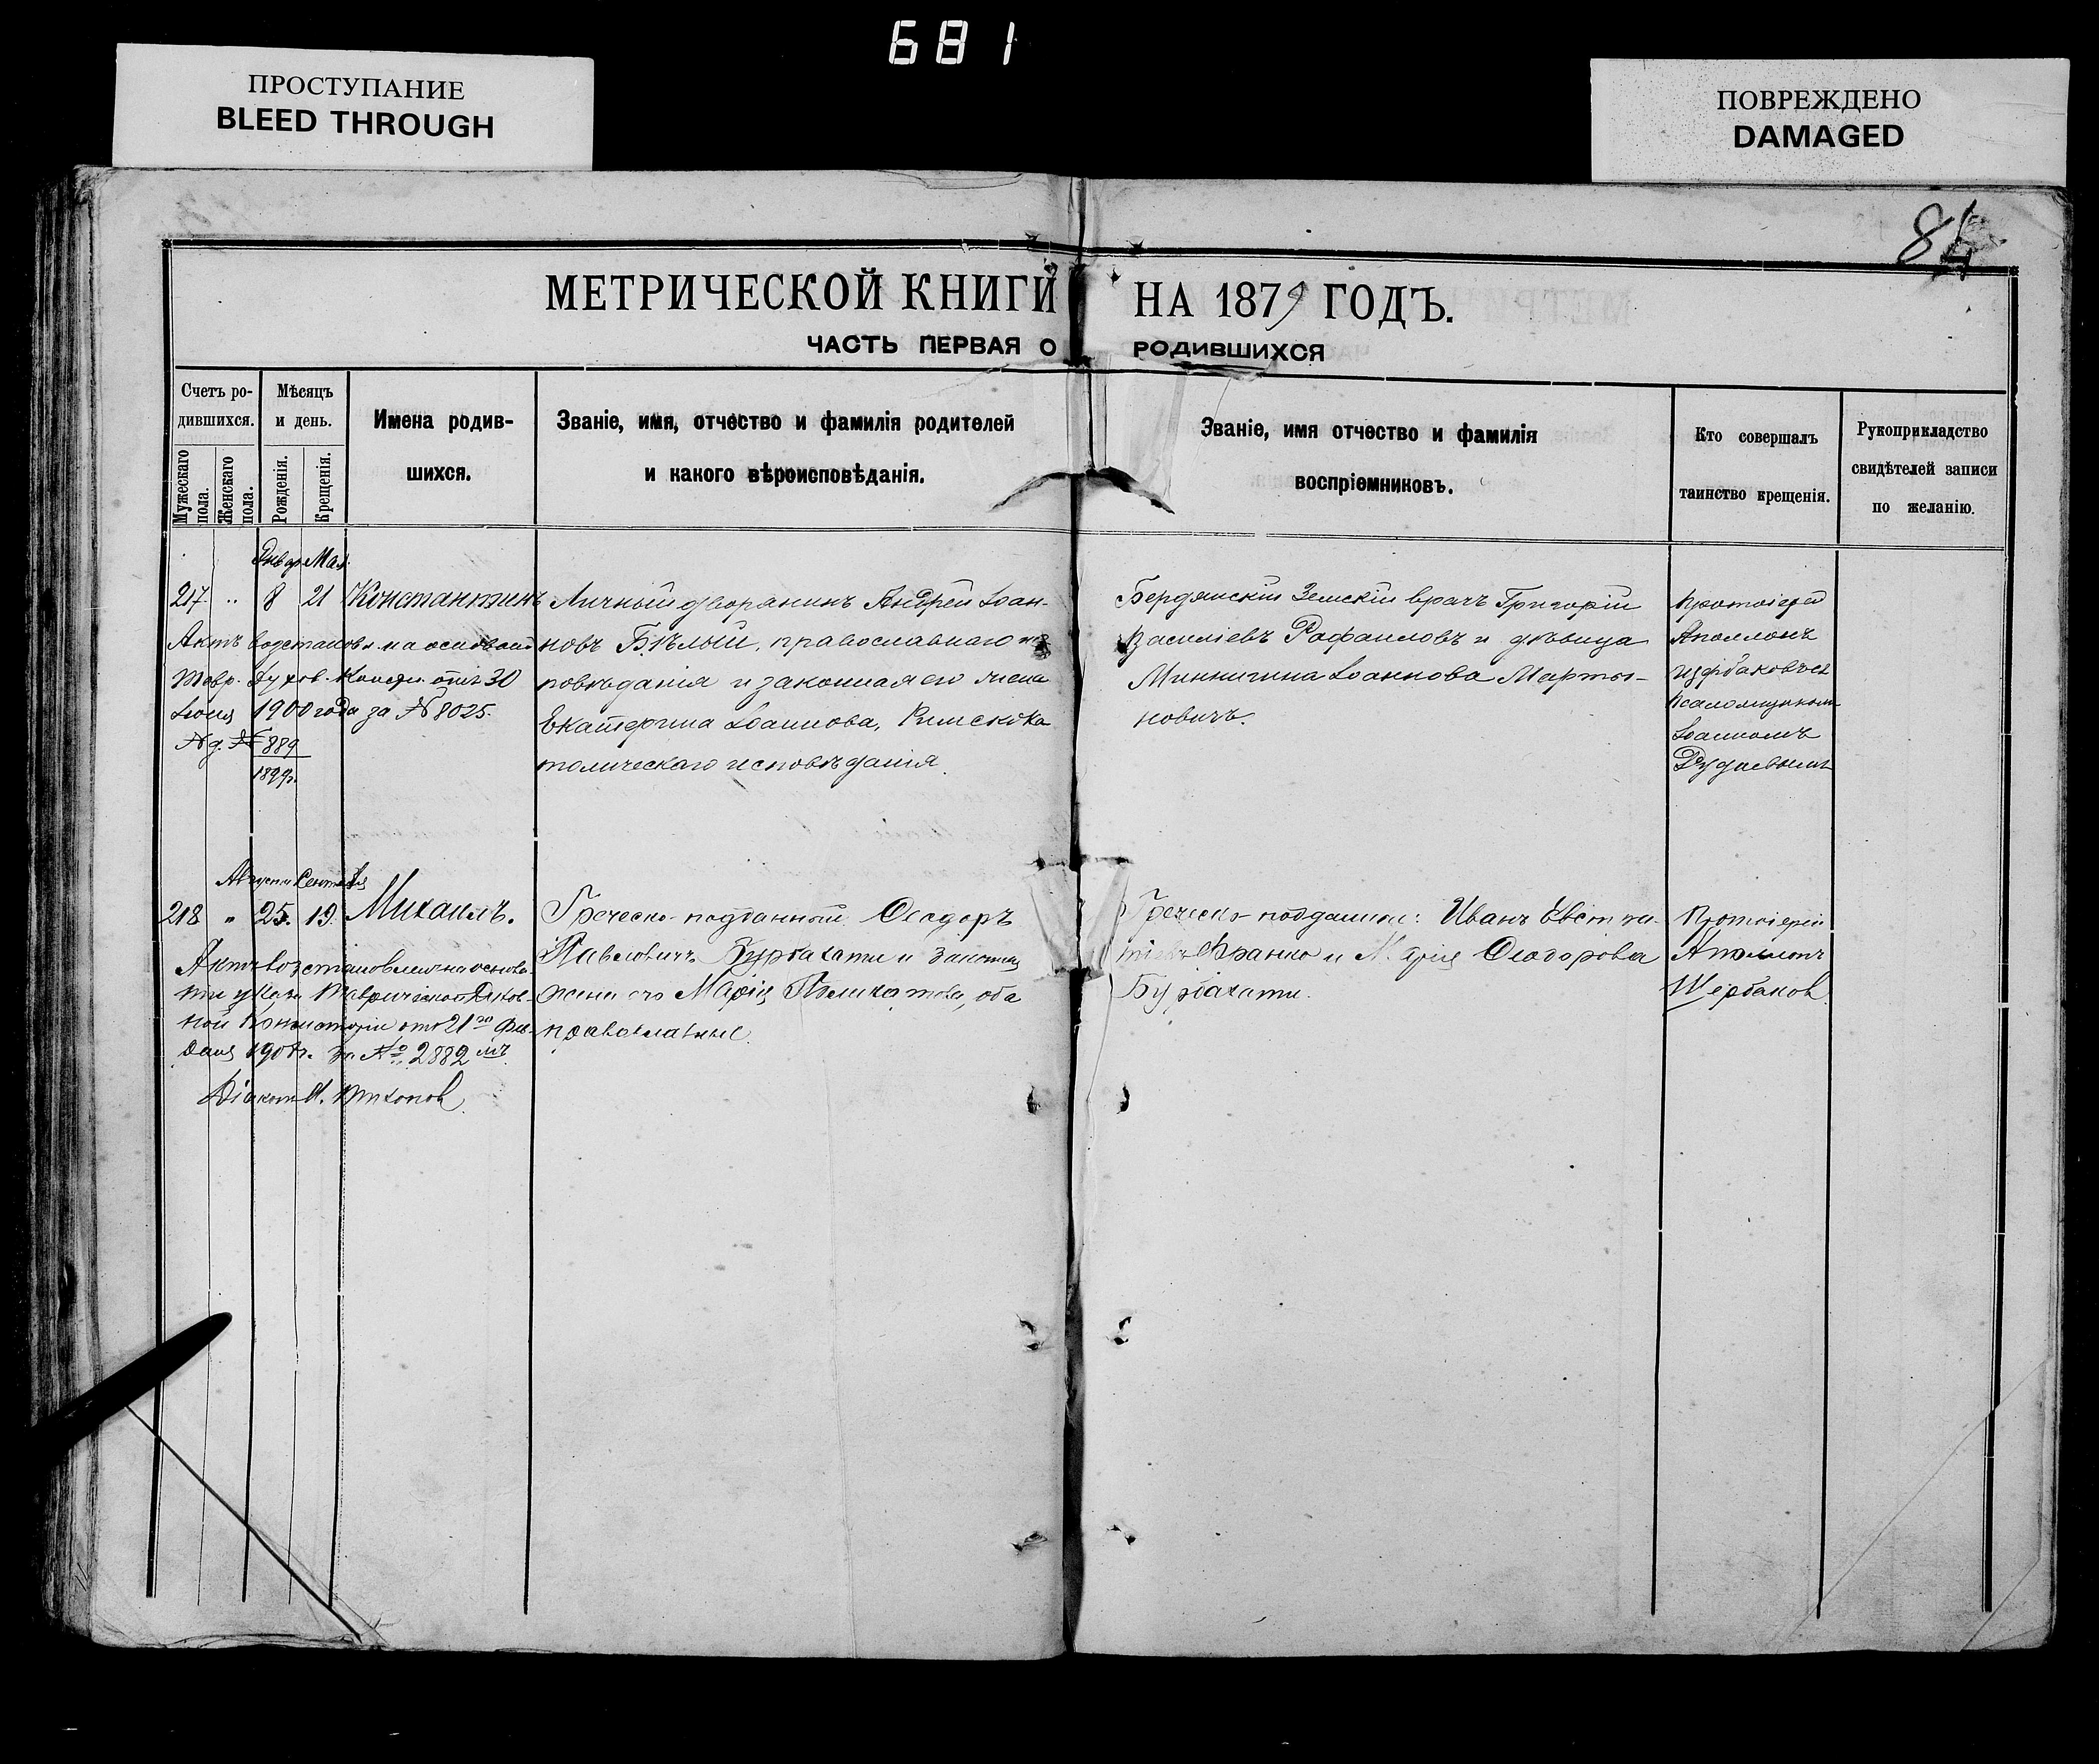 681
ПРОСТУПАНИЕ
BLEED THROUGH
ПОВРЕЖДЕНО
DAMAGED
84
МЕТРИЧЕСКОЙ КНИГИ НА 1879 ГОДЪ.
ЧАСТЬ ПЕРВАЯ О РОДИВШИХСЯ
Счетъ ро-
дившихся.
Мужескаго пола.
Женскаго пола.
Мѣсяцъ
и день.
Рожденія.
Крещенія.
Имена родив-
шихся.
Званіе, имя, отчество и фамилія родителей
и какого вѣроисповѣданія.
Званіе, имя отчество и фамилія
воспріемниковъ.
Кто совершалъ
таинство крещенія.
Рукоприкладство
свидѣтелей записи
по желанію.
Январ Мая
217. " 8 21 Константинъ
Актъ возстановл. на основаніи
Тавр. Духов. Консис. отъ 30
Іюня 1900 года за № 8025.
№ 889
1899г.
Личный дворянинъ Андрей Іоан-
новъ Бѣлый, православнаго ис-
повѣданія и законная его жена
Екатерина Іоаннова, Римскока
толическаго исповѣданія.
Бердянскій Земскій врачъ Григорій
Василіевъ Рафаиловъ и дѣвица
Іоаннова Марты-
новичъ.
Протоіерей
Аполлонъ
Псаломщикомъ
Іоанномъ
Августа Сентября
218 " 25. 19. Михаилъ.
Актъ возстановленъ на основа-
ніи указа Таврической Духов-
ной Консисторіи отъ 21го
за № 2882 мъ.
Діаконъ
Греческо-подданный Ѳеодоръ
Павловичъ Бурбахати и законная
жена его Марія оба
православные.
Греческо-подданные: Иванъ
Франко и Марія Ѳеодорова
Бурбахати.
Протоіерей
Аполлонъ
Щербаков